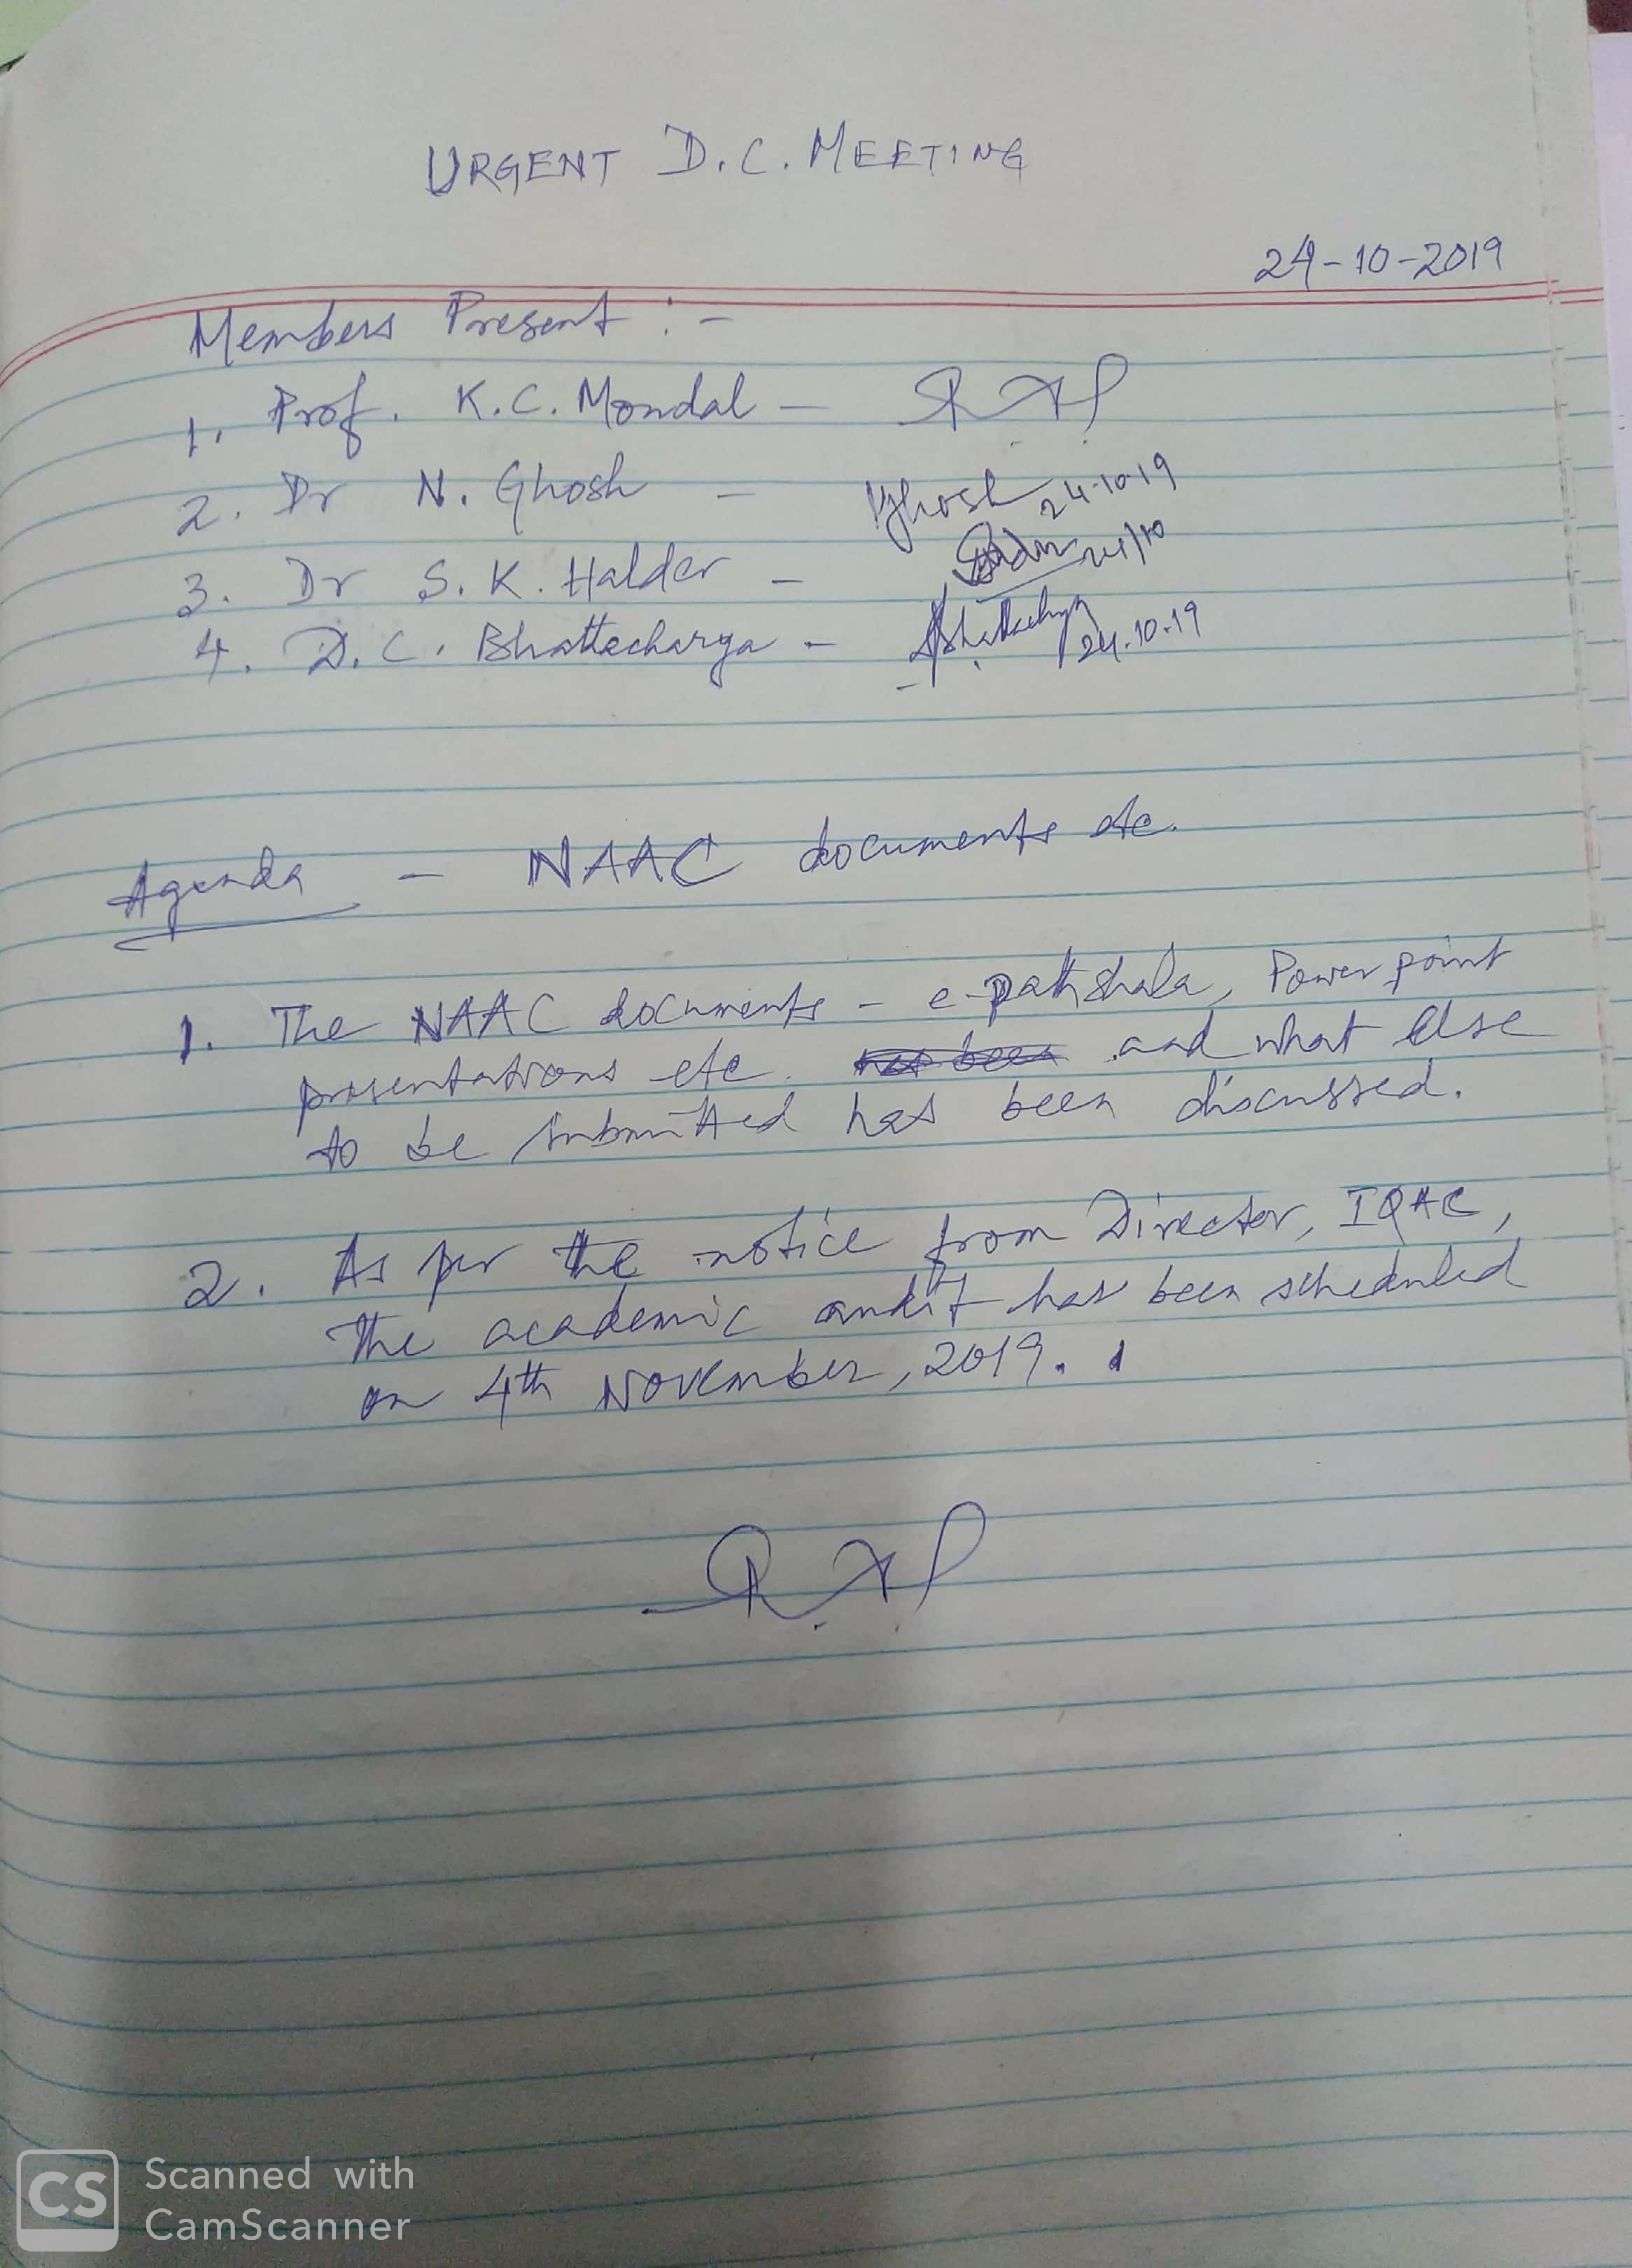 URGENT D.C. MEETING
24-10-2019
Members Present :-
1. Prof. K.C. Mondal -
2. Dr N. Ghosh - Ghosh 24.10.19
3. Dr S.K. Halder - 24/10
4. D.C. Bhattacharya - Bhattacharya 24.10.19
Agenda - NAAC documents etc.
1. The NAAC documents - e-pathshala, Power point
presentations etc. has been and what else
to be submitted has been discussed.
2. As per the notice from Director, IQAC,
the academic audit has been scheduled
on 4th November, 2019.
CS Scanned with
CamScanner